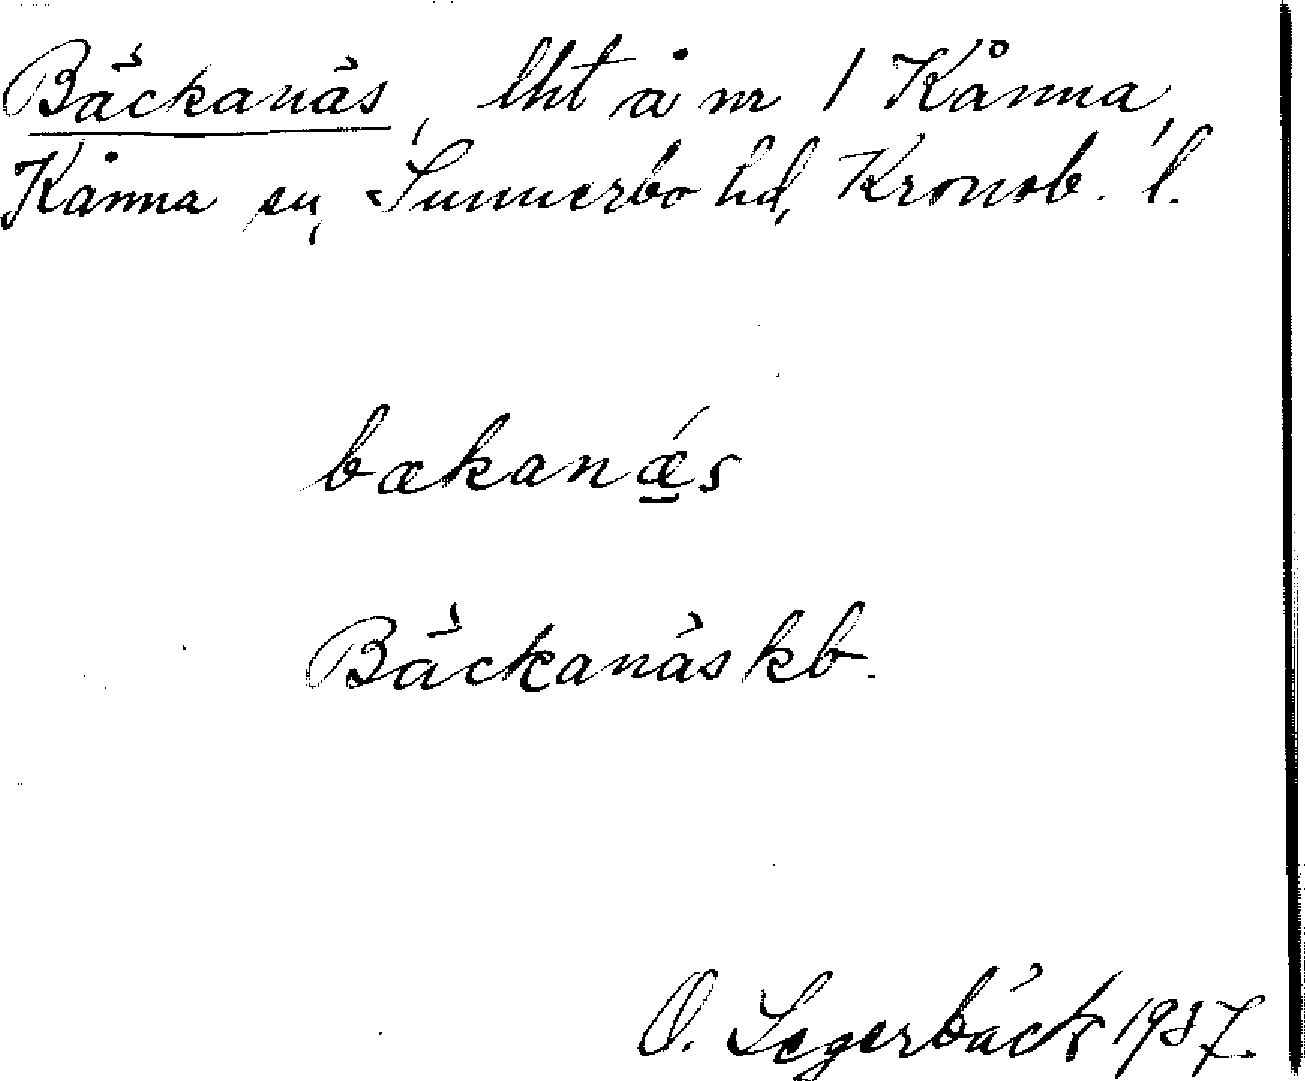 Bäckanäs, lht å nr 1 Kånna,
Kånna sn, Sunnerbo hd, Kronob. l.
bækanǽ̱s
Bäckanäs kb.
O. Segerbäck 1937.